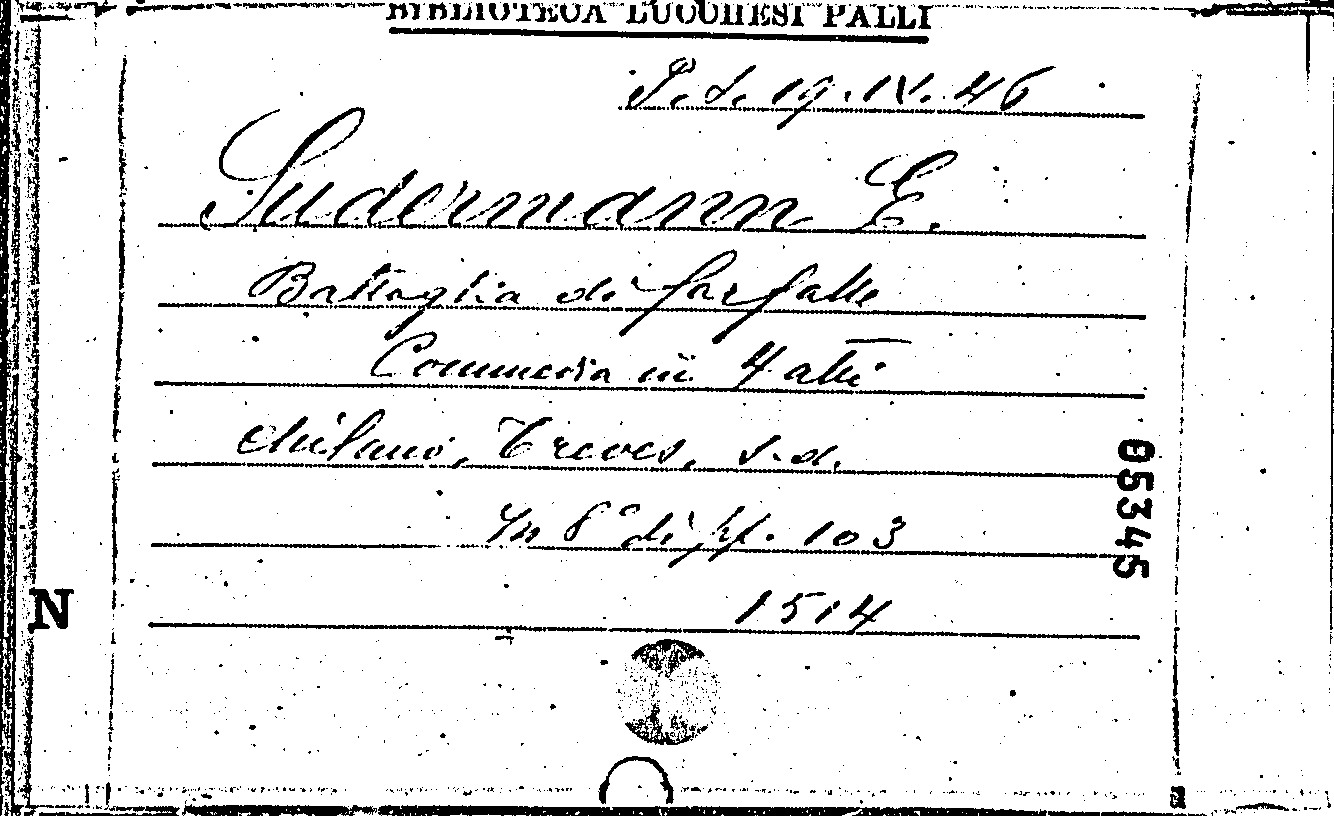 BIBLIOTECA LUCCHESI PALLI
P.S. 19.IV.46
Sudermann E.
Battaglia di farfalle
Commedia in 4 atti
Milano, Treves, s.d.
In 8° di pp. 103
05345
1514
N